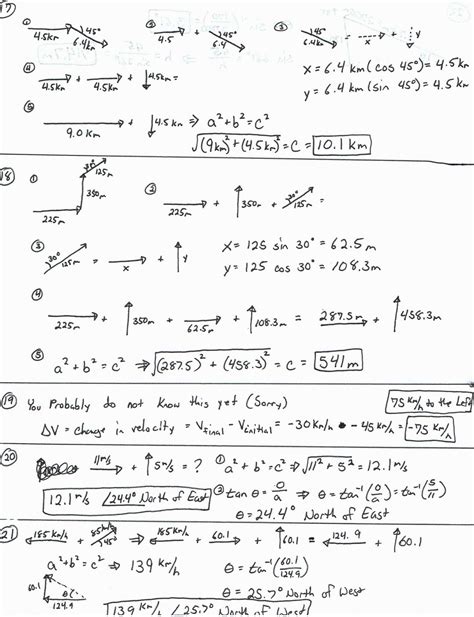 17 ① 4.5km 45° 6.4km ② 4.5 + 45° 6.4 ③ 45° 6.4km = x + y
x = 6.4 km (cos 45°) = 4.5 km
y = 6.4 km (sin 45°) = 4.5 km
④ 4.5km + 4.5km + 4.5km =
⑤ 9.0 km + 4.5 km ⇒ a² + b² = c²
√(9km)² + (4.5km)² = c = 10.1 km
18 ① 225m 350m 30° 125m ② 225m + 350m + 30° 125m =
③ 30° 125m = x + y
x = 125 sin 30° = 62.5 m
y = 125 cos 30° = 108.3 m
④ 225m + 350m + 62.5m + 108.3m = 287.5m + 458.3m
⑤ a² + b² = c² ⇒ √(287.5)² + (458.3)² = c = 541 m
19 You Probably do not know this yet (Sorry) 75 Km/h to the Left
ΔV = change in velocity = Vfinal - Vinitial = -30 Km/h - 45 Km/h = -75 Km/h
20 11 m/s + 5 m/s = ? ① a² + b² = c² ⇒ √11² + 5² = 12.1 m/s
12.1 m/s ∠24.4° North of East
② tan θ = o/a ⇒ θ = tan⁻¹(o/a) = tan⁻¹(5/11)
θ = 24.4° North of East
21 185 Km/h + 85 Km/h 45° ⇒ 185 Km/h + 60.1 + 60.1 = 124.9 + 60.1
a² + b² = c² ⇒ 139 Km/h
θ = tan⁻¹(60.1/124.9)
60.1 θ 124.9
θ = 25.7° North of West
139 Km/h ∠25.7° North of West